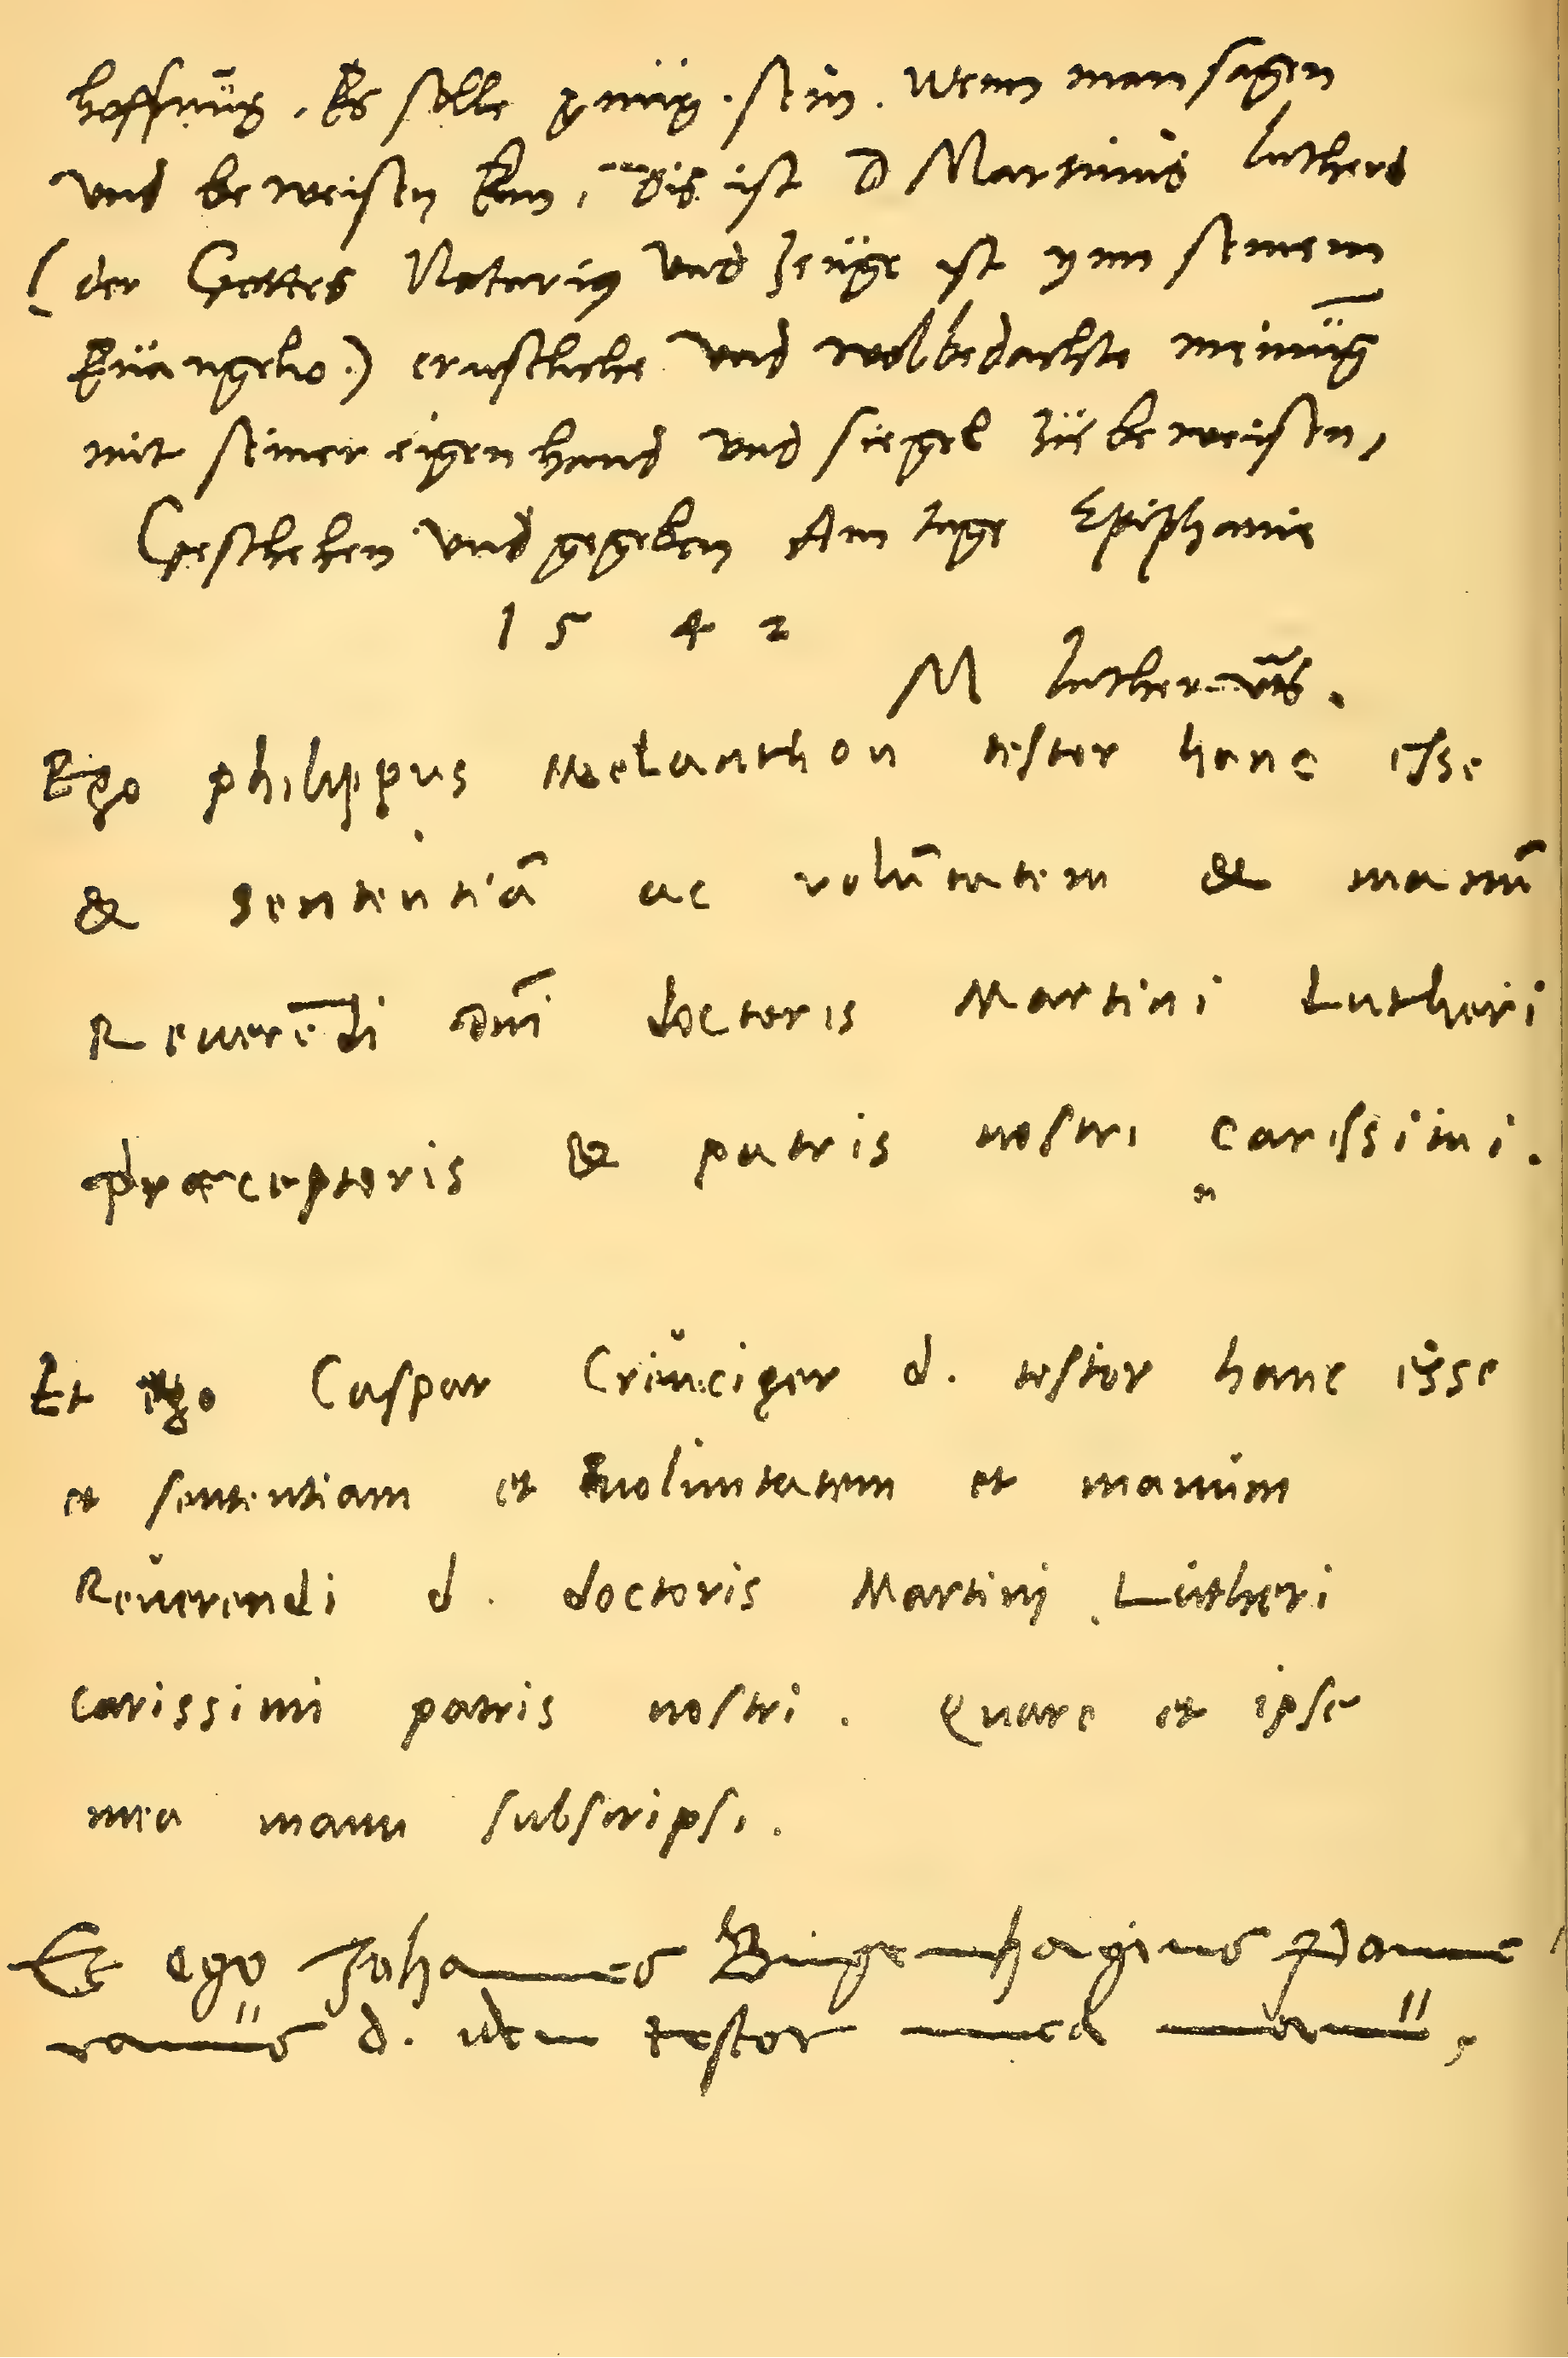 hoffnūg. Es solle gnüg sein. Wenn man sagen
vnd beweisen kan, Dis ist D Martinus Luthers
(der Gottes Notarig vnd zeüge ist ynn seinem
Eüangelio) ernstliche vnd wolbedachte meinüg
mit seiner eigen hand vnd siegel zü beweisen,
Geschehen vnd gegeben Am tage Epiphanie
1542
M Luther
Ego philippus Melanthon testor hanc esse
& sententiā ac volūtatem & manū
Reuerēdi dnī doctoris Martini Lutheri
præceptoris & patris nostri carissimi.
Et ego Caspar Crŭciger d. testor hanc esse
et sententiam et uoluntatem et manŭm
Reŭerendi d. doctoris Martinj Lŭtheri
carissimi patris nostri. Quare et ipse
mea manu subscripsi.
Et ego Johannes Bugenhagius Pome
ranus d. idem testor mea manu,